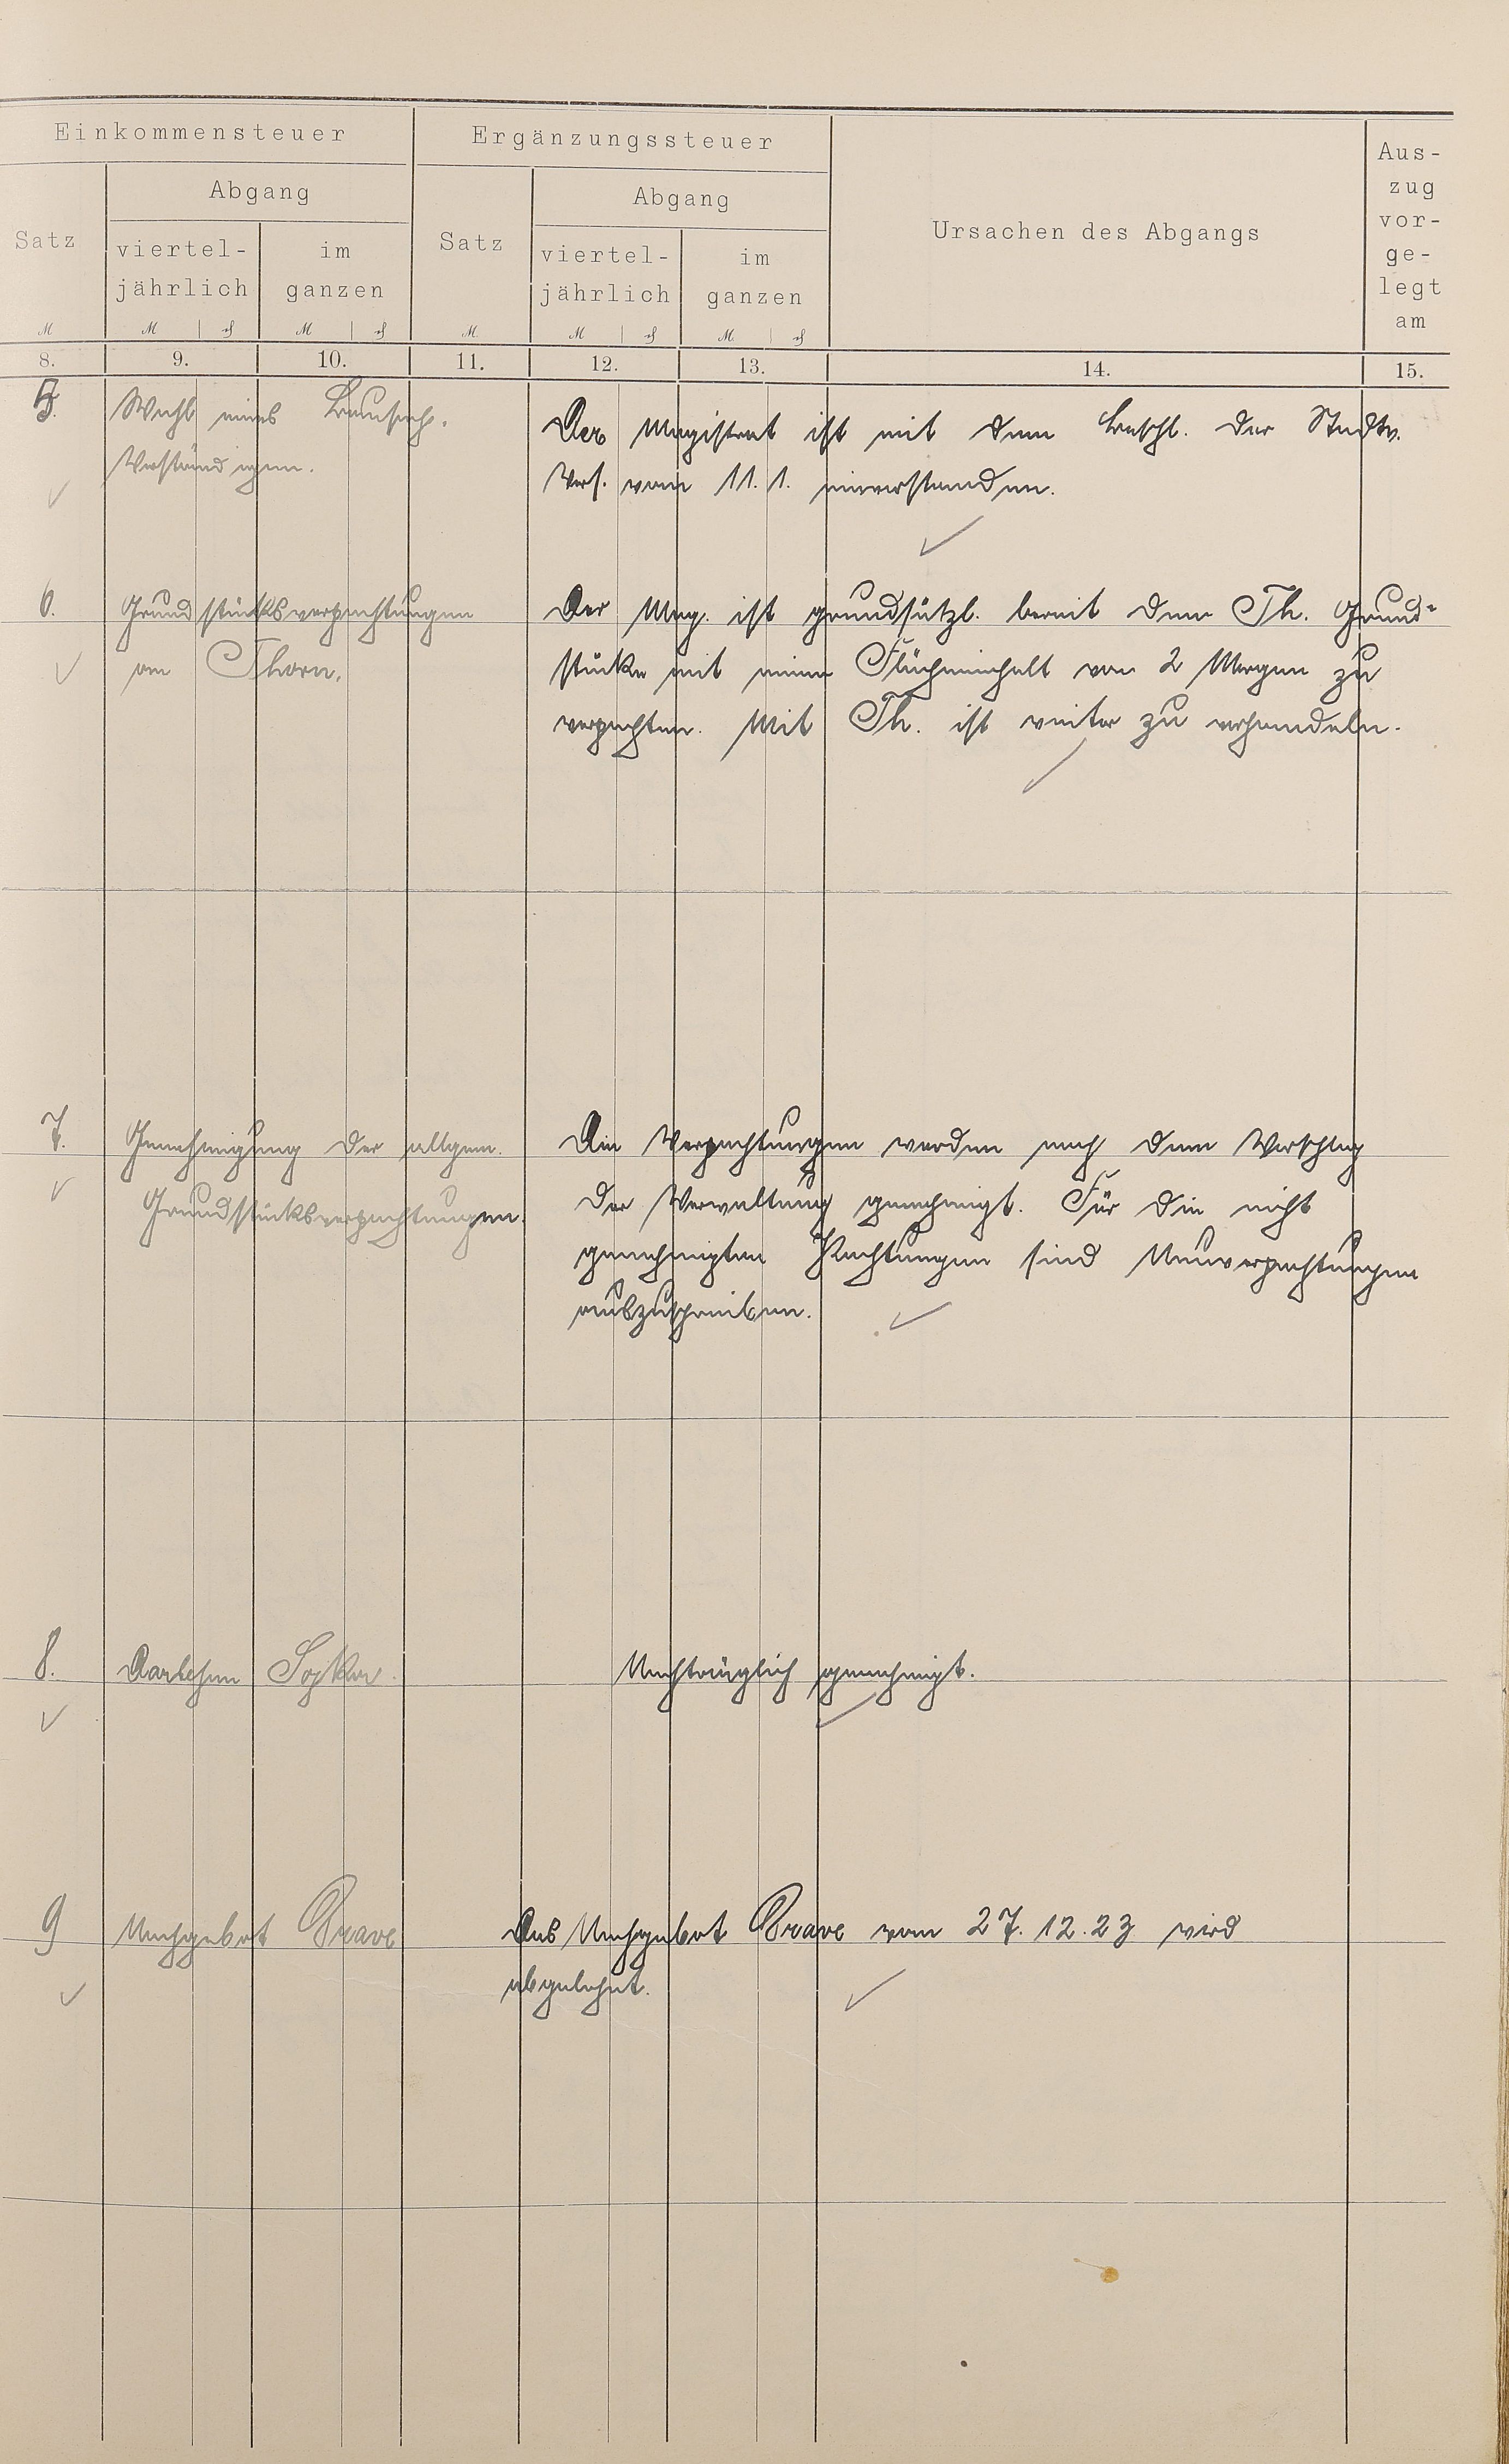 Einkommensteuer
Ergänzungssteuer
Ursachen des Abgangs
Aus-
zug
vor-
ge-
legt
am
Satz
Abgang
viertel-
jährlich
im
ganzen
Satz
Abgang
viertel-
jährlich
im
ganzen
M
M
M
M
M
M
8. 9. 10. 11. 12. 13. 14. 15.
5. Wahl eines Bausach.
Verständigen.
Der Magistrat ist mit dem Beschl. der Stadtv.
Vers. vom 11.1. einverstanden.
6. Grundstücksverpachtungen
an Thorn.
Der Mag. ist grundsätzl. bereit dem Th. Grund-
stücke mit einem Flächeninhalt von 2 Morgen zu
verpachten. Mit Th. ist weiter zu verhandeln.
7. Genehmigung der allgem.
Grundstücksverpachtungen.
Die Verpachtungen werden nach dem Vorschlag
der Verwaltung genehmigt. Für die nicht
genehmigten Pachtungen sind Neuverpachtungen
auszuschreiben.
8. Darlehen Sojka.
Nachträglich genehmigt.
9 Nachgebot Grave
Das Nachgebot Grave vom 27.12.23 wird
abgelehnt.